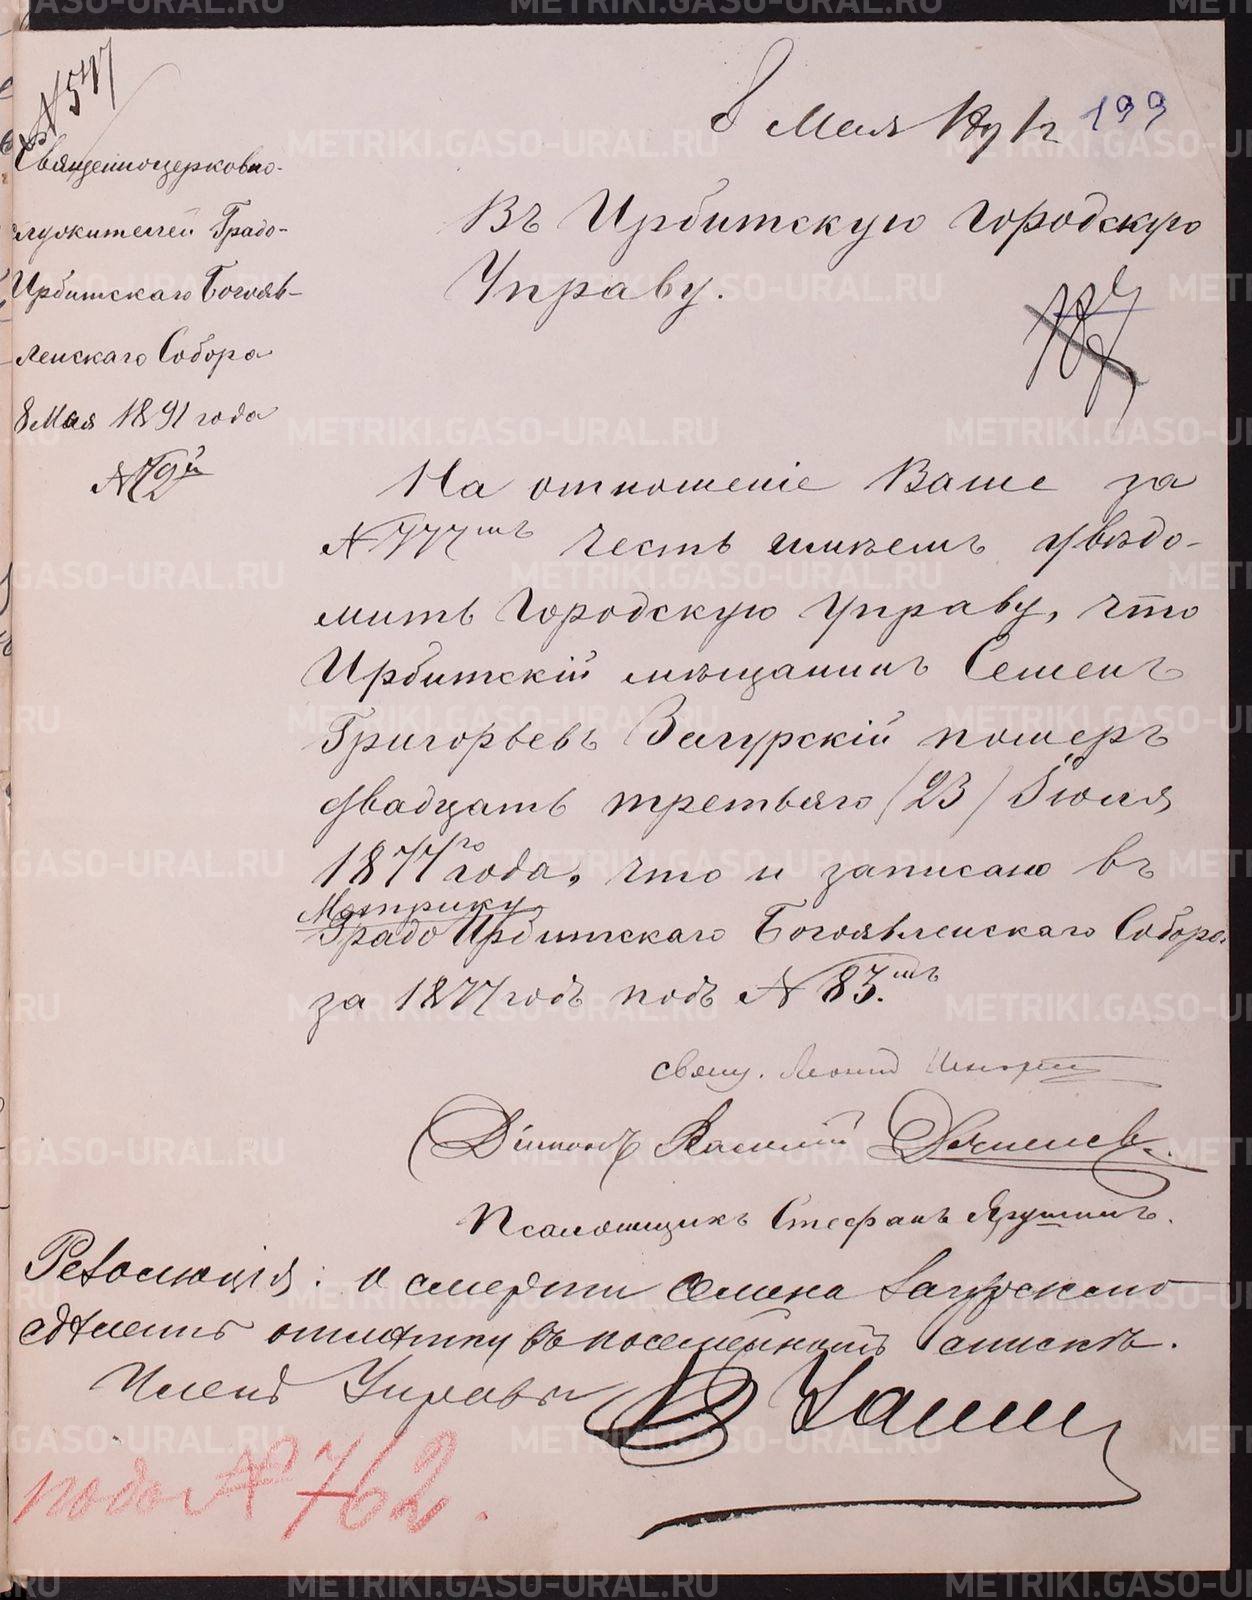 № 547
8 Мая 1891 г
199
Священноцерковно-
служителей Градо-
Ирбитскаго Богояв-
ленскаго Собора
8 Мая 1891 года
№ 72й
Въ Ирбитскую Городскую
Управу.
На отношеніе Ваше за
№ 777мъ честь имѣемъ увѣдо-
мить Городскую Управу, что
Ирбитскій мѣщанинъ Семенъ
Григорьевъ Загурскій померъ
двадцать третьяго (23) Іюля
1877го года, что и записано въ
Метрику
Градо Ирбитскаго Богоявленскаго Собора
за 1877 годъ подъ № 83.мъ
Свящ. Леонид
Діаконъ Василій
Псаломщикъ Стефанъ Ярушинъ.
Резолюція: о смерти Семена Загурскаго
сдѣлать отмѣтку въ посемейномъ спискѣ.
Членъ Управы
подо № 762.
METRIKI.GASO-URAL.RU